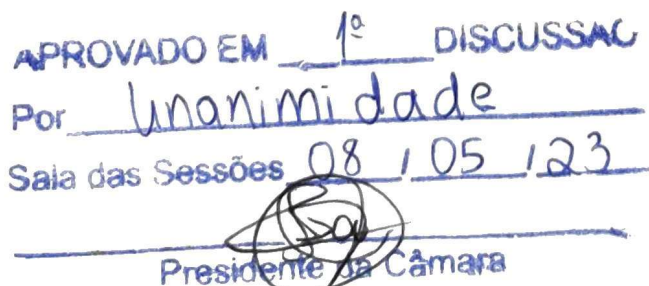 APROVADO EM 1ª DISCUSSAO
Por Unanimidade
Sala das Sessões 08 / 05 / 23
Presidente da Câmara